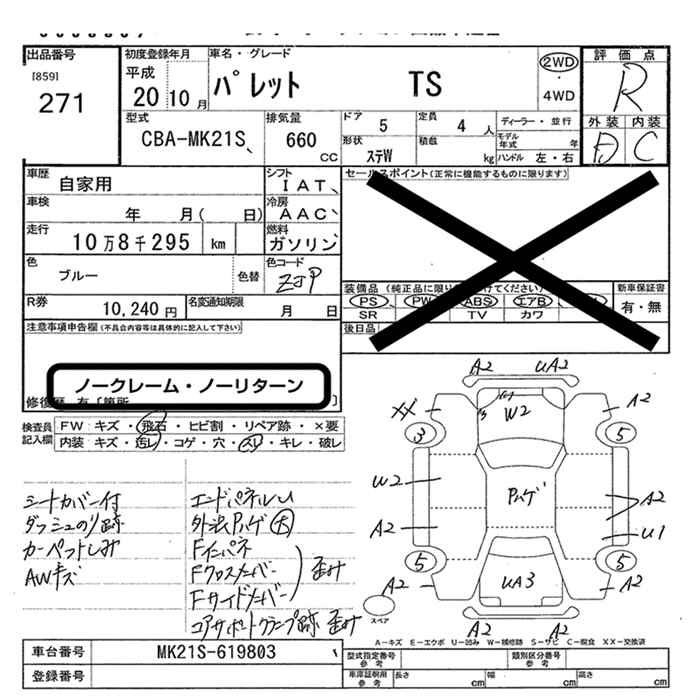 出品番号
[859]
271
初度登録年月
平成
20 10 月
車名・グレード
パレット TS
2WD
・
4WD
評価点
R
外装 内装
D C
型式
CBA-MK21S
排気量
660 CC
ドア
5
定員
4 人
ディーラー・並行
形状
ステW
積載
kg
モデル年式 年
ハンドル 左・右
車歴
自家用
シフト
IAT
車検
年 月( 日)
冷房
AAC
走行
10万8千295 km
燃料
ガソリン
色
ブルー
色替
色コード
ZJP
R券
10,240 円
名変通知期限
月 日
セールスポイント(正常に機能するものに限ります)
装備品
PS PW ABS エアB
SR TV カワ
新車保証書
有・無
後日品
注意事項申告欄(不具合内容等は具体的に記入して下さい)
ノークレーム・ノーリターン
検査員記入欄
FW:キズ・飛石・ヒビ割・リペア跡・×要
内装:キズ・汚レ・コゲ・穴・スリ・キレ・破レ
シートカバー付
ダッシュのり跡
カーペットしみ
AWキズ
エンドパネルU
外装ハゲ 大
Fインパネ
Fクロスメンバー
Fサイドメンバー
歪み
コアサポートクランプ跡 歪み
A2 UA2
XX W2 A2
3 5
W2 ハゲ A2
A2 U1
5 5
A2 UA3 A2
スペア A2 A2
A−キズ E−エクボ U−凹み W−補修跡 S−サビ C−腐食 XX−交換済
車台番号
MK21S-619803
登録番号
型式指定番号 参考
類別区分番号 参考
車庫証明用 参考
長さ cm
幅 cm
高さ cm